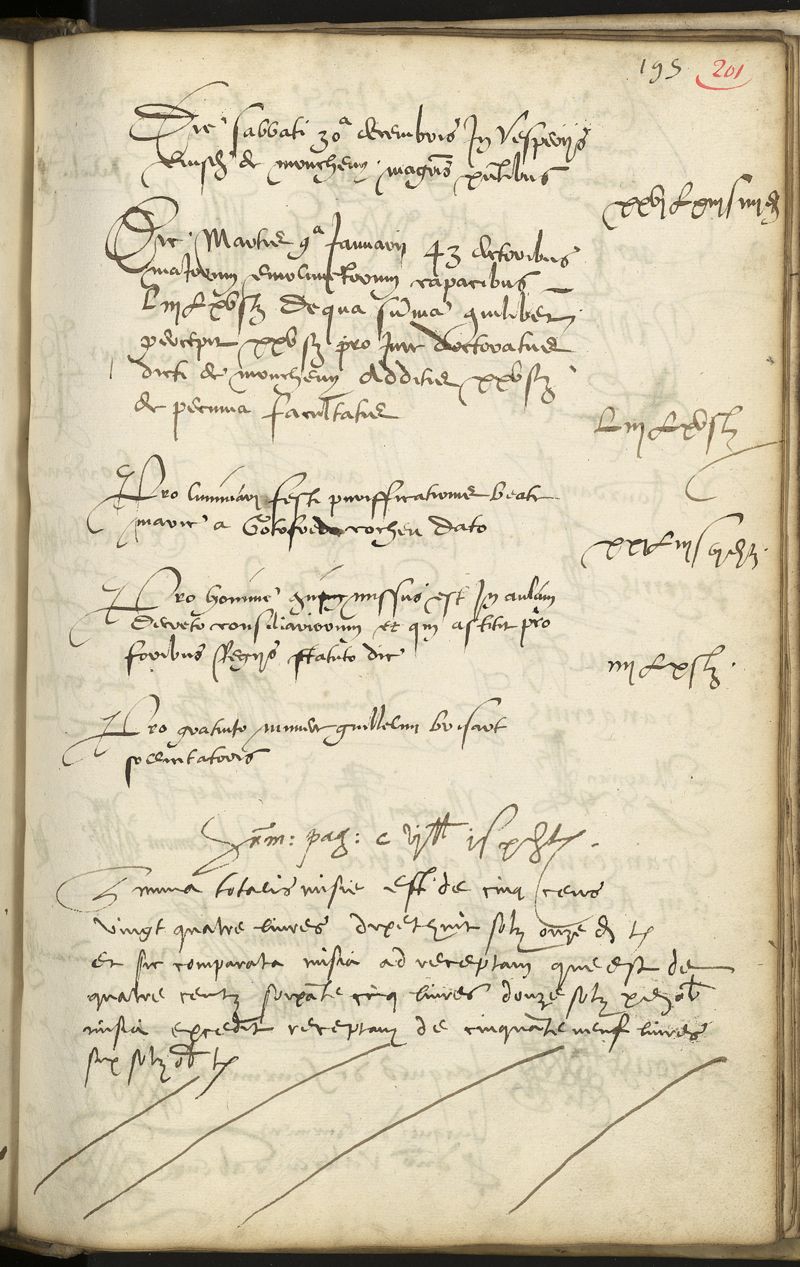 195 201
Die sabbati 30a decembris In Vesperiis
eiusd de moncheny magris pntibus
xxvj L xiij S iiij d
Die Martis 9a Januarii 43 doctoribus
majorum emolumentorum capacibus
Liij L xv s tz de qua suma quilibet
percepit xxv s tz pro Jure doctoratus
dicti de moncheny additis xxv s tz
de pecunia facultatis
Liij L xv s tz
Pro luminari festi puriffcationis beate
marie a Gotofredo cochen dato
Pro homine qui missus est In aulam
Decreto consiliariorum et qui astitit pro
foribus Regiis statuto die
iiij L x s tz
Pro gratuito munere guillelmi brisart
sollicitatoris
Sum: pag: c
Summa totalis misie est de cinq cens
vingt quatre livres dixethuit solz onze d t
et sic comparata misia ad receptam que est de
quatre centz soixante cinq livres douze solz x d ob
misia excedit receptam de cinquante neuf livres
six solz ob t